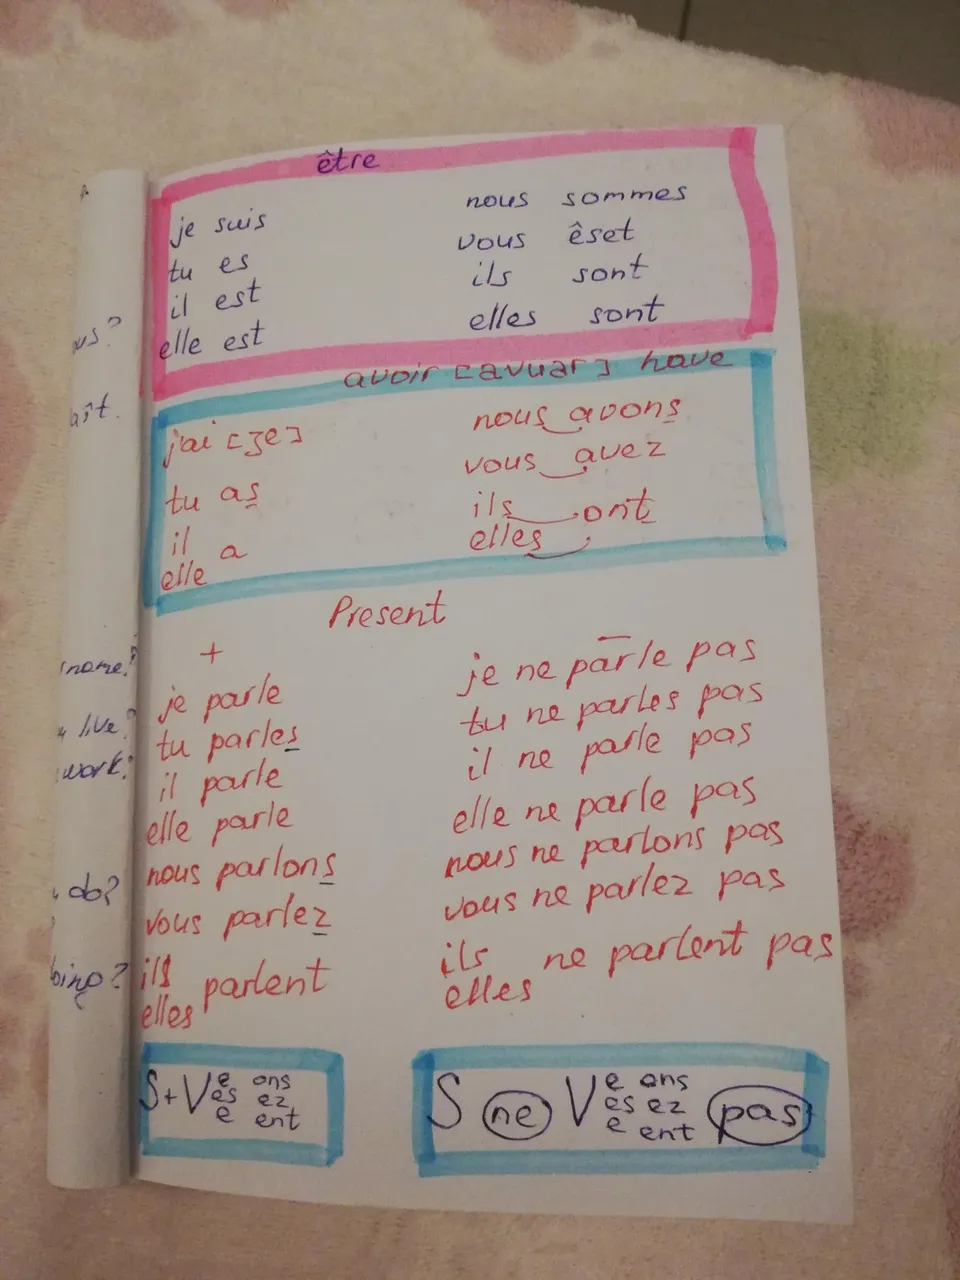 être
je suis nous sommes
tu es vous êset
il est ils sont
elle est elles sont
avoir [avuar] have
j'ai [ʒe] nous avons
tu as vous avez
il a ils ont
elle elles
Present
+ –
je parle je ne parle pas
tu parles tu ne parles pas
il parle il ne parle pas
elle parle elle ne parle pas
nous parlons nous ne parlons pas
vous parlez vous ne parlez pas
ils parlent ils ne parlent pas
elles elles
S+V e ons S ne V e ons pas
es ez es ez
e ent e ent
name?
live?
work?
do?